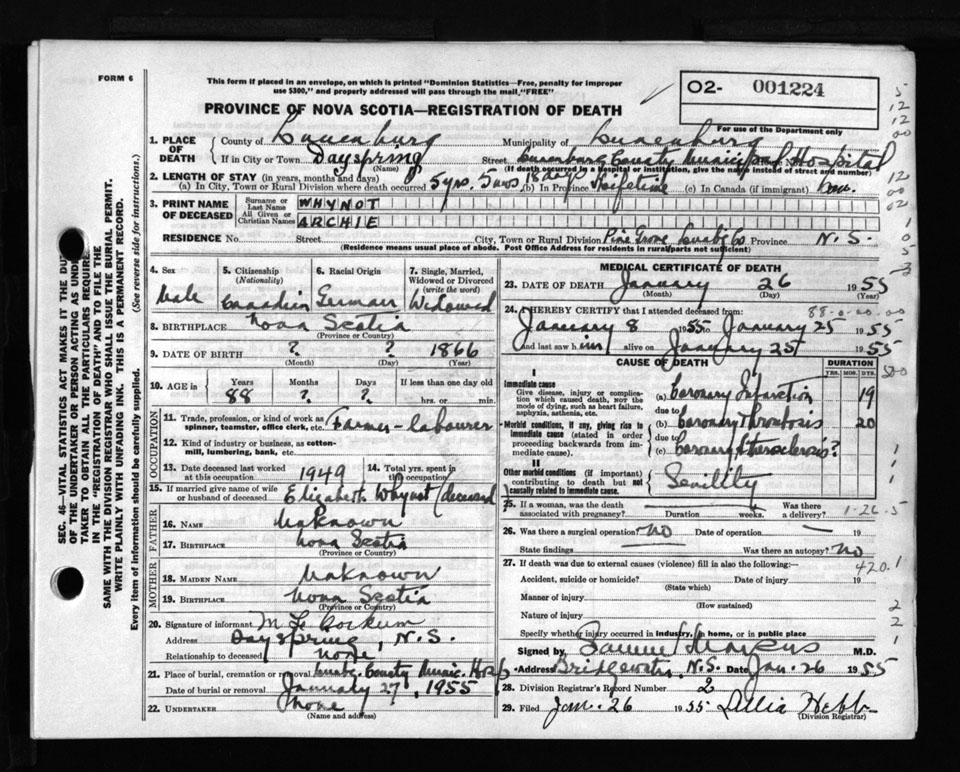 FORM 6
This form if placed in an envelope, on which is printed "Dominion Statistics—Free, penalty for improper
use $300," and properly addressed will pass through the mail, "FREE"
PROVINCE OF NOVA SCOTIA—REGISTRATION OF DEATH
O2- 001224
For use of the Department only
1. PLACE OF DEATH County of Lunenburg Municipality of Lunenburg
If in City or Town Dayspring (Name) Street Lunenburg County Municipal Hospital
(If death occurred in a hospital or institution, give the name instead of street and number)
2. LENGTH OF STAY (in years, months and days)
(a) In City, Town or Rural Division where death occurred 5 yrs. 5 mos 18 days (b) In Province Lifetime (c) In Canada (if immigrant)
3. PRINT NAME OF DECEASED Surname or Last Name WHYNOT
All Given or Christian Names ARCHIE
RESIDENCE No. Street City, Town or Rural Division Pine Grove Lunbg Co Province N.S.
(Residence means usual place of abode. Post Office Address for residents in rural parts not sufficient)
4. Sex Male
5. Citizenship (Nationality) Canadian
6. Racial Origin German
7. Single, Married, Widowed or Divorced (write the word) Widowed
8. BIRTHPLACE Nova Scotia
(Province or Country)
9. DATE OF BIRTH ? ? 1866
(Month) (Day) (Year)
10. AGE in Years 88 Months ? Days ? If less than one day old hrs. or min.
OCCUPATION
11. Trade, profession, or kind of work as spinner, teamster, office clerk, etc. Farmer-labourer
12. Kind of industry or business, as cotton-mill, lumbering, bank, etc.
13. Date deceased last worked at this occupation 1949
14. Total yrs. spent in this occupation
15. If married give name of wife or husband of deceased Elizabeth Whynot (deceased
FATHER
16. NAME Unknown
17. BIRTHPLACE Nova Scotia
(Province or Country)
MOTHER
18. MAIDEN NAME Unknown
19. BIRTHPLACE Nova Scotia
(Province or Country)
20. Signature of informant
Address Dayspring, N.S.
Relationship to deceased none
21. Place of burial, cremation or removal Lunbg. County Munic. Hosp
Date of burial or removal January 27, 1955
22. UNDERTAKER none
(Name and address)
MEDICAL CERTIFICATE OF DEATH
23. DATE OF DEATH January 26 1955
(Month) (Day) (Year)
88-0-00.00
24. I HEREBY CERTIFY that I attended deceased from:
January 8 1955 to January 25 1955
and last saw him alive on January 25 1955
CAUSE OF DEATH DURATION
YRS. MOS. DYS.
I
Immediate cause
Give disease, injury or complication which caused death, not the mode of dying, such as heart failure, asphyxia, asthenia, etc.
(a) Coronary Infarction 19
due to
Morbid conditions, if any, giving rise to immediate cause (stated in order proceeding backwards from immediate cause).
(b) Coronary Thrombosis 20
due to
(c) Coronary Atherosclerosis ?
II
Other morbid conditions (if important) contributing to death but not causally related to immediate cause.
Senility
25. If a woman, was the death associated with pregnancy? Duration weeks. Was there a delivery? 1-26-5
26. Was there a surgical operation? NO Date of operation 19
State findings Was there an autopsy? NO
27. If death was due to external causes (violence) fill in also the following: 420.1
Accident, suicide or homicide? Date of injury 19
(State which)
Manner of injury
(How sustained)
Nature of injury
Specify whether injury occurred in industry, in home, or in public place
Signed by M.D.
Address Bridgewater, N.S. Date Jan. 26 1955
28. Division Registrar's Record Number 2
29. Filed Jan. 26 1955 Lillia Hebb
(Division Registrar)
SEC. 46—VITAL STATISTICS ACT MAKES IT THE DUTY
OF THE UNDERTAKER OR PERSON ACTING AS UNDER-
TAKER TO OBTAIN ALL THE PARTICULARS REQUIRED
IN THE "REGISTRATION OF DEATH" AND TO FILE THE
SAME WITH THE DIVISION REGISTRAR WHO SHALL ISSUE THE BURIAL PERMIT.
WRITE PLAINLY WITH UNFADING INK. THIS IS A PERMANENT RECORD.
Every item of information should be carefully supplied. (See reverse side for instructions.)